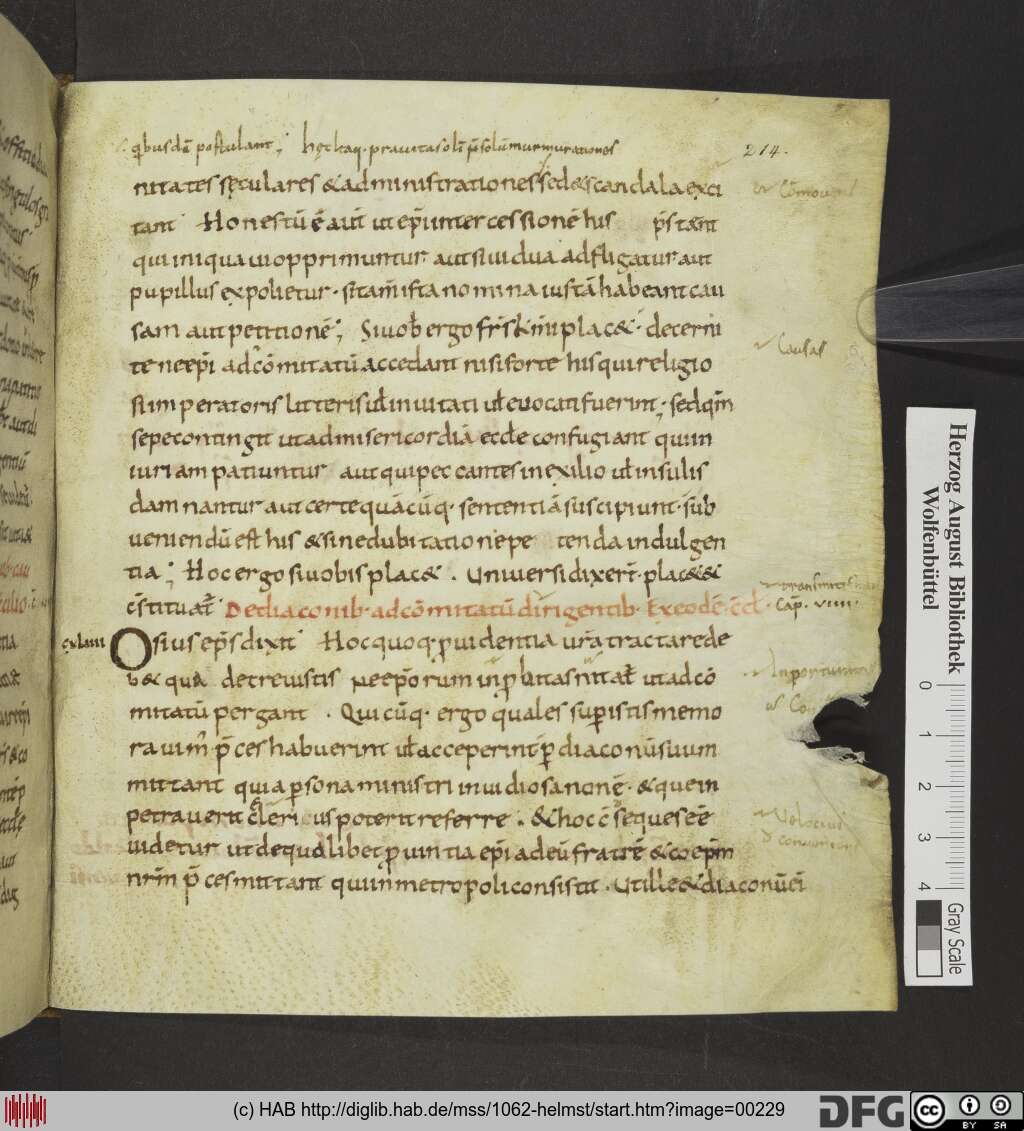 qibusdā postulant; hęc itaq· prauitas olī p̄ solū murmurationes
214.
nitates sęculares & administrationes sed & scandala exci
tant Honestū ē aut̄ ut ep̄i intercessionē his p̄stant
qui iniqua ui opprimuntur aut si uidua adfligatur aut
pupillus expolietur · si tam̄ ista nomina iustā habeant cau
sam aut petitionē; Si uob̄ ergo fr̄s k̄m̄i plac& · decerni
te ne ep̄i ad cōmitatū accedant nisi forte hi qui religio
si imperatoris litteris ul̄ inuitati ul̄ euocati fuerint; sed qm̄
sepe contingit ut ad misericordiā eccl̄e confugiant qui in
iuriam patiuntur aut qui peccantes in exilio ul̄ insulis
damnantur aut certe quācūq· sententiā suscipiunt · sub
ueniendū est his & sine dubitatione pe tenda indulgen
tia; Hoc ergo si uobis plac& . Uniuersi dixer̄ · plac& &
c̄stituat̄ De diaconib· ad cōmitatū dirigentib· Ex eodē c̄cl · Cap̄ · viiii ·
cxlaiii
Osius ep̄s dixit Hoc quoq· p̄uidentia ur̄a tractare de
b& quia decreuistis Ne ep̄orum inp̄bitas nitat̄ ut ad cō
mitatū pergant . Quicūq· ergo quales sup̄ istis memo
rauim̄ p̄ces habuerint ul̄ acceperint p̄ diaconū suum
mittant quia p̄sona ministri inuidiosa non ē · & que in
petrauerit cęleri us poterit referre . & hoc c̄seques eē
uidetur ut de qualibet p̄uintia ep̄i ad eū fratrē & coep̄m
nr̄m p̄ces mittant qui in metropoli consistit . Ut ille & diaconū ei
Causas
Herzog August Bibliothek
Wolfenbüttel
0 1 2 3 4
Gray Scale
(c) HAB http://diglib.hab.de/mss/1062-helmst/start.htm?image=00229
DFG
cc BY SA